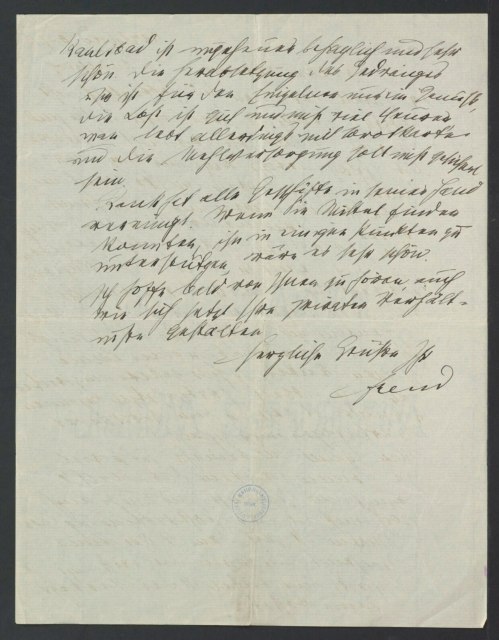 Karlsbad ist ungeheuer behaglich und sehr
schön. Die Herabsetzung des Gedränges
ist für den Einzelnen nur ein Genuß,
die Kost ist gut und nicht viel teurer
man lebt allerdings mit Brotkarte
und die Mehlversorgung soll nicht gesichert
sein.
Rank hat alle Geschäfte in seiner Hand
vereinigt. Wenn Sie Mittel finden
könnten, ihn in einigen Punkten zu
unterstützen, wäre es sehr schön.
Ich hoffe bald von Ihnen zu hören, auch
wie sich jetzt Ihre privaten Verhält-
nisse gestalten
Herzliche Grüße Ihr
Freud